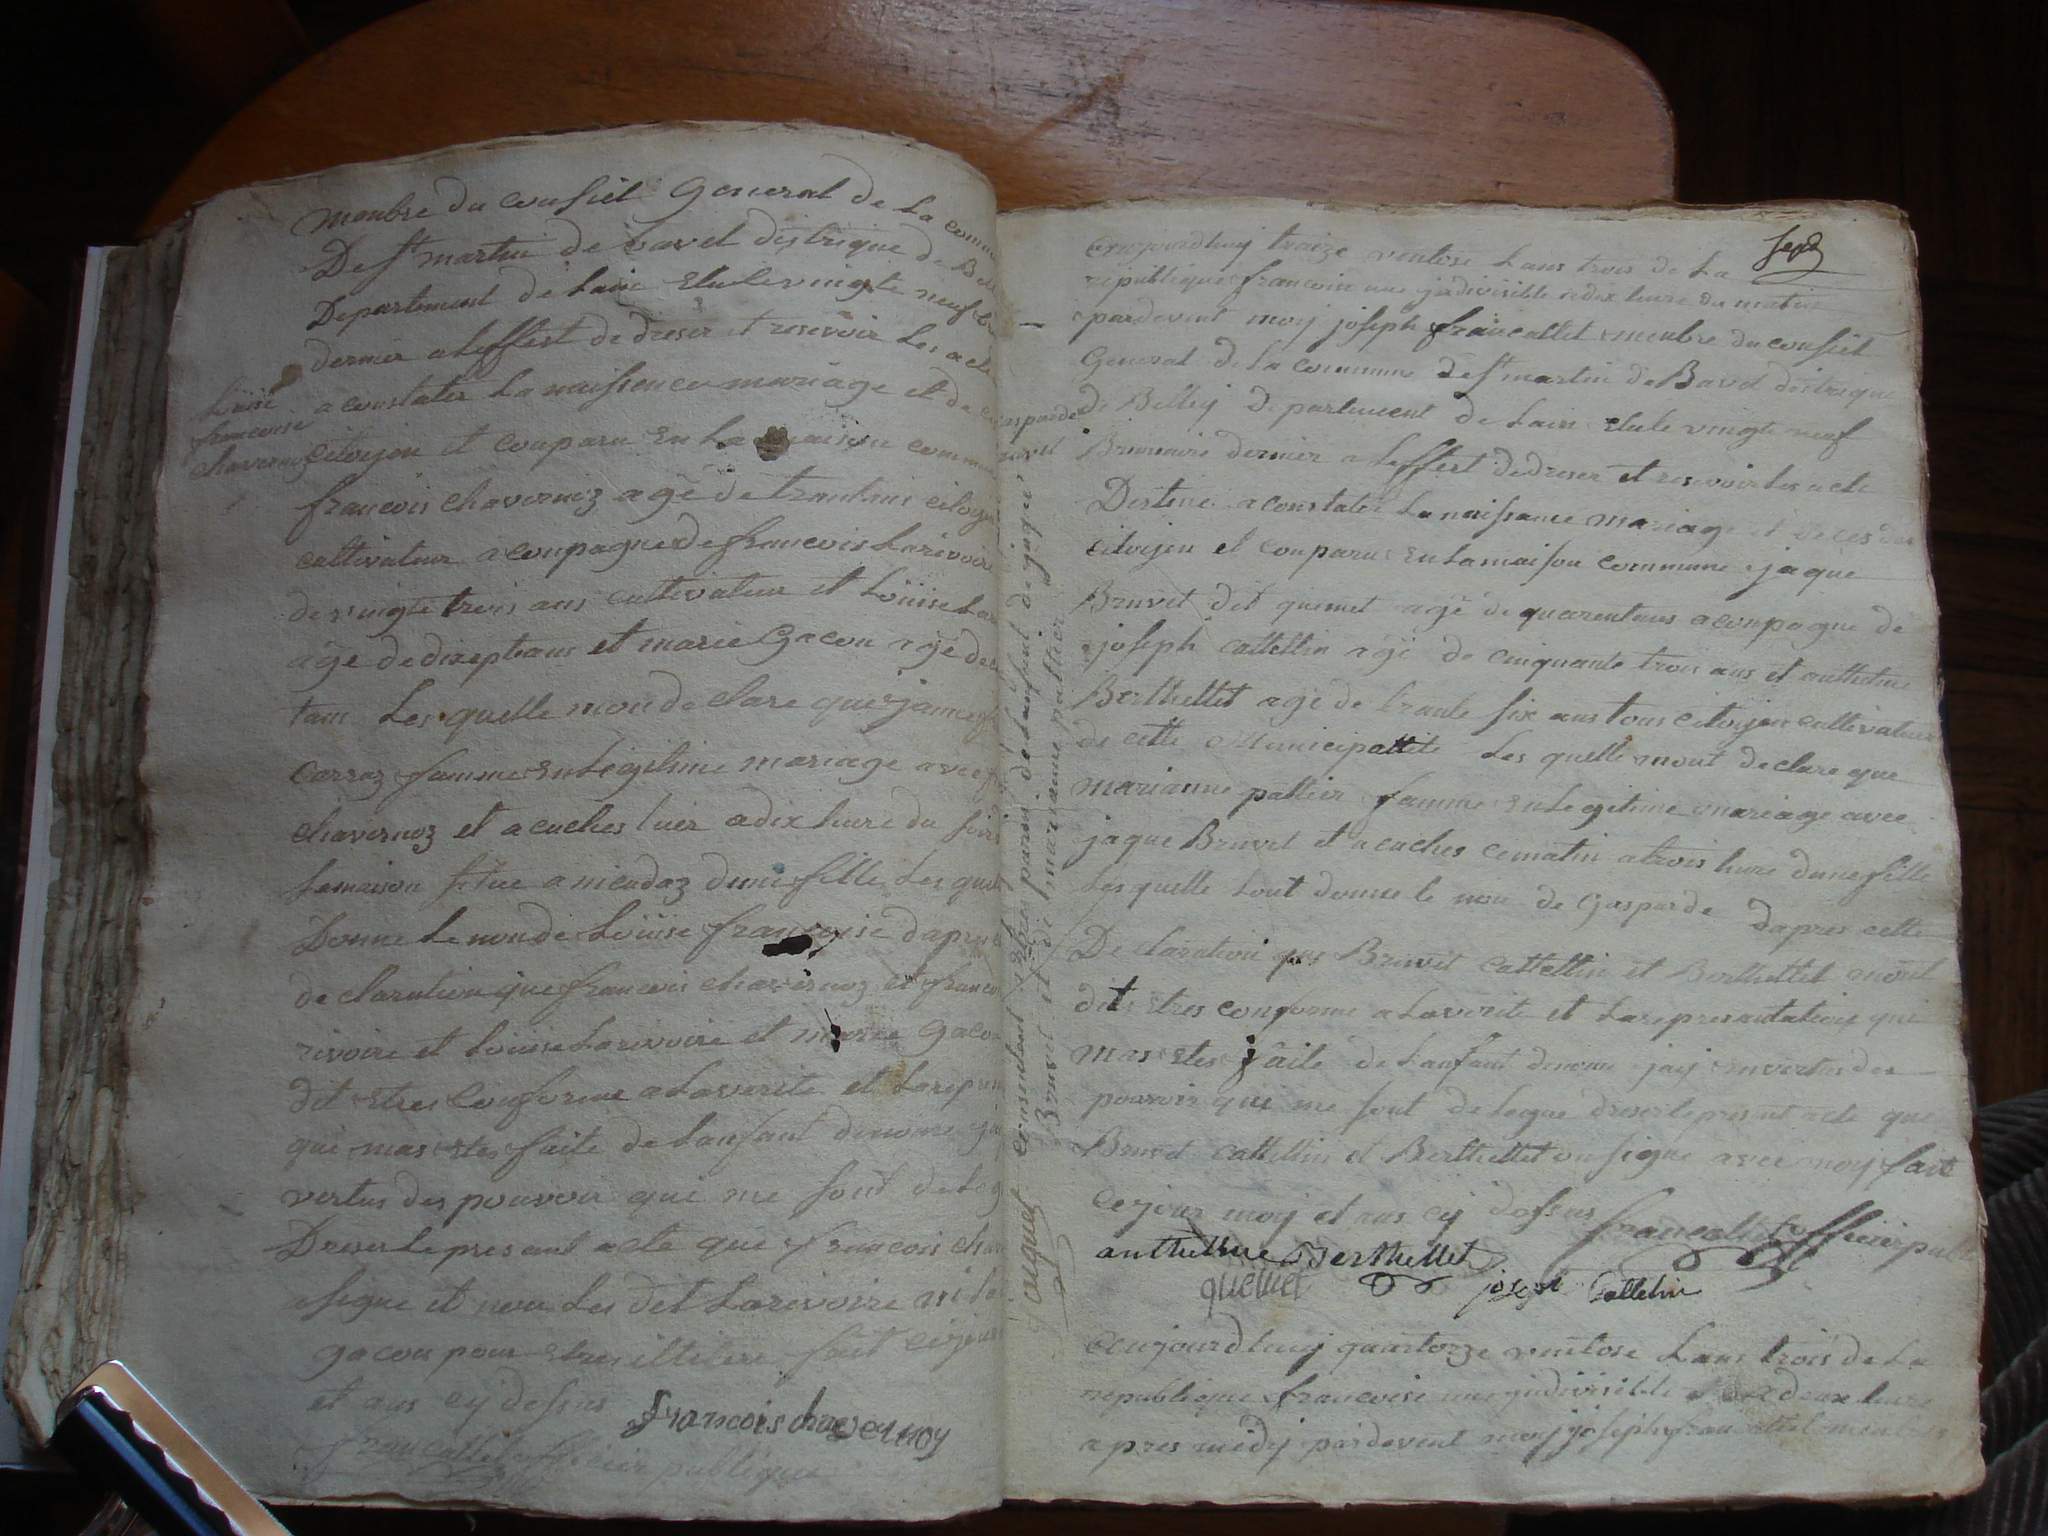 menbre du consiel General de la comm
De st martin de Bavel distrique de Bell
Departement de Lain Elule vingte neuf br
dernier a leffest de dreser et resevoir Les acte
a constater La naissence mariage et de ce
citoyen et conparu En La maison commun
francois chavernoz agé de trantuns citoye
cultivateur aconpagné de francois Larivoire
de vingte trois ans cultivateur et Loüise Lar
agé de diseptians et marie Gacon agé de
tans Les quelle mon declare que jaime
Carraz famme En Legitime mariage avec f
chavernoz et acuches hier a dix hure du soir
Lamaison situe a mendaz dune fille Les quell
Donne Le nom de Loüise francoise dapres
declaration que francois chavernoz et franco
rivoire et Louise Larivoire et marie Gacon
dit Etres Conforme a Laverite et Larepres
que mas Etes faite de Lanfant denome jai
vertus des pouvoir qui me sont deleg
Dreser Le presant acte que francois chav
a signe et non Les det Larivoire ni la
gacon pour Etres illitere fait ce jour
et ans cy dessus francois chavernoy
francallet officier publique
Loüise
francoise
chavernoz
Gasparde
Bruvet
jaquet consentent Etres parain de Lanfant de jaque
Bruvet et de marianne pallier
sept
aujourdhuy traize ventose Lans trois de La
republique francoise une jndivisible a dix heure du matin
pardevent moy joseph francallet menbre du consiel
General de La commune de st martin de Bavel distrique
de Belley departement de Lain Elule vingte neuf
Brumaire dernier a leffest de dreser et resevoir les acte
Destine a constater La naissance mariage et deces des
citoyen et conparus En La maison commune jaque
Bruvet dit quemet agé de quarentans aconpagne de
joseph Cattellin agé de cinquante trois ans et anthelme
Berthellet agé de trante six ans tous citoyen cultivateur
de cette Municipallite Les quelle mont declare que
marianne pallier famme En Legitime mariage avec
jaque Bruvet et acuches ce matin a trois hure dune fille
Les quelle Lont donne le nom de Gasparde dapres cette
Declaration que Bruvet Cattellin et Berthellet mont
dit Etres conforme a Laverite et Larepresantation qui
mas Etes faite de Lanfant denome jay en vertus des
pouvoir qui me sont delegue dreser le presant acte que
Bruvet Cattellin et Berthellet on signe avec moy fait
ce jour moy et ans cy dessus francallet officier pub
anthelme Berthellet
quemet joseph Cattelin
aujourdhuy quartorze ventose Lans trois de La
republique francoise une jndivisible a deux hure
apres midy pardevent moy joseph francallet menbre